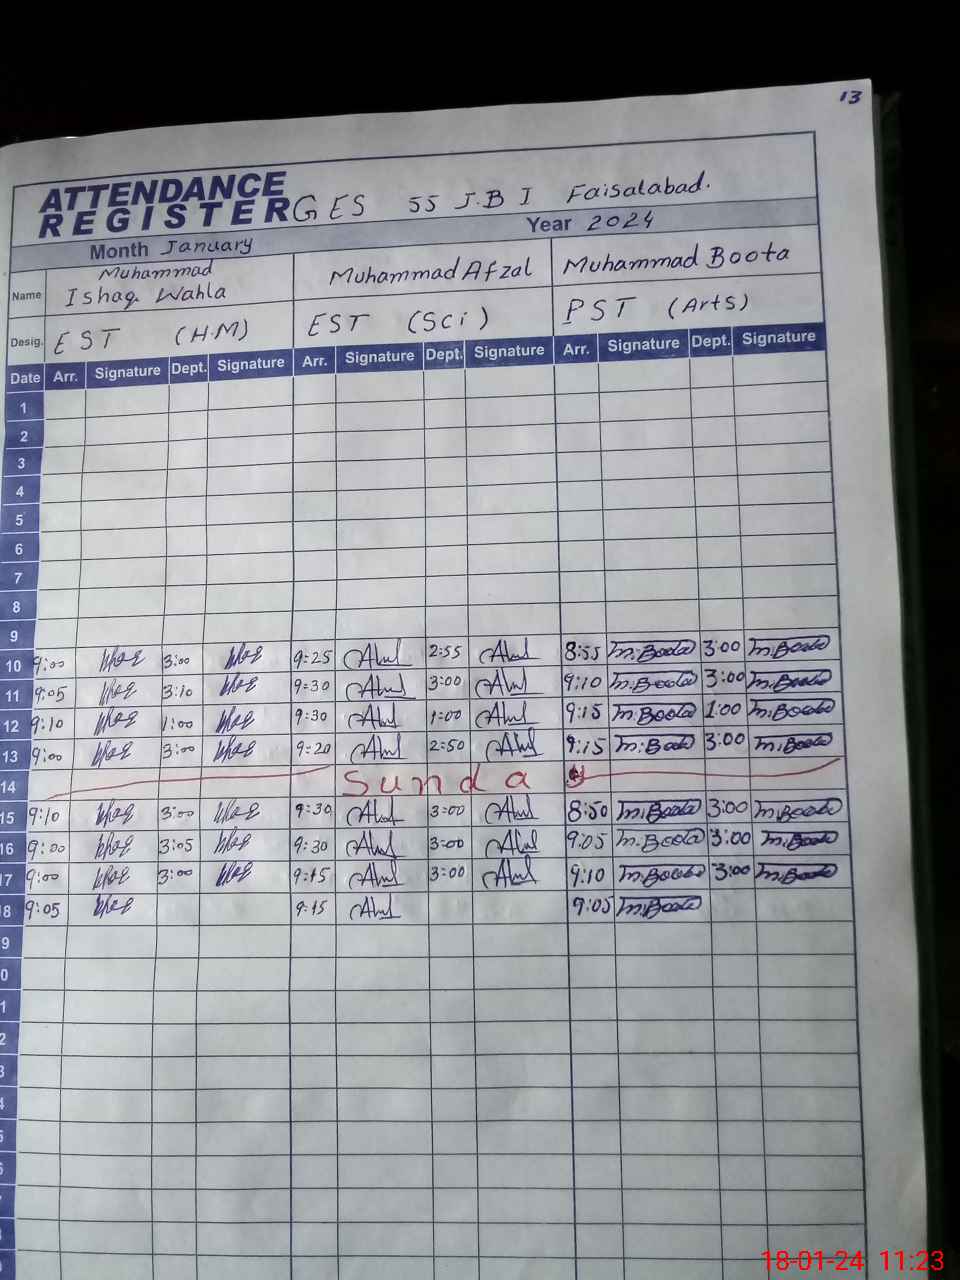 13
ATTENDANCE
REGISTER GES 55 J.B I Faisalabad.
Month January Year 2024
Name Muhammad Ishaq Wahla Muhammad Afzal Muhammad Boota
Desig. EST (H.M) EST (Sci) PST (Arts)
Date Arr. Signature Dept. Signature Arr. Signature Dept. Signature Arr. Signature Dept. Signature
1
2
3
4
5
6
7
8
9
10 9:00 3:00 9:25 2:55 8:55 M.Boota 3:00 M.Boota
11 9:05 3:10 9:30 3:00 9:10 M.Boota 3:00 M.Boota
12 9:10 1:00 9:30 1:00 9:15 M.Boota 1:00 M.Boota
13 9:00 3:00 9:20 2:50 9:15 M.Boota 3:00 M.Boota
14 Sunday
15 9:10 3:00 9:30 3:00 8:50 M.Boota 3:00 M.Boota
16 9:00 3:05 9:30 3:00 9:05 M.Boota 3:00 M.Boota
17 9:00 3:00 9:15 3:00 9:10 M.Boota 3:00 M.Boota
8 9:05 9:15 9:05 M.Boota
9
0
1
2
3
4
5
6
18-01-24 11:23